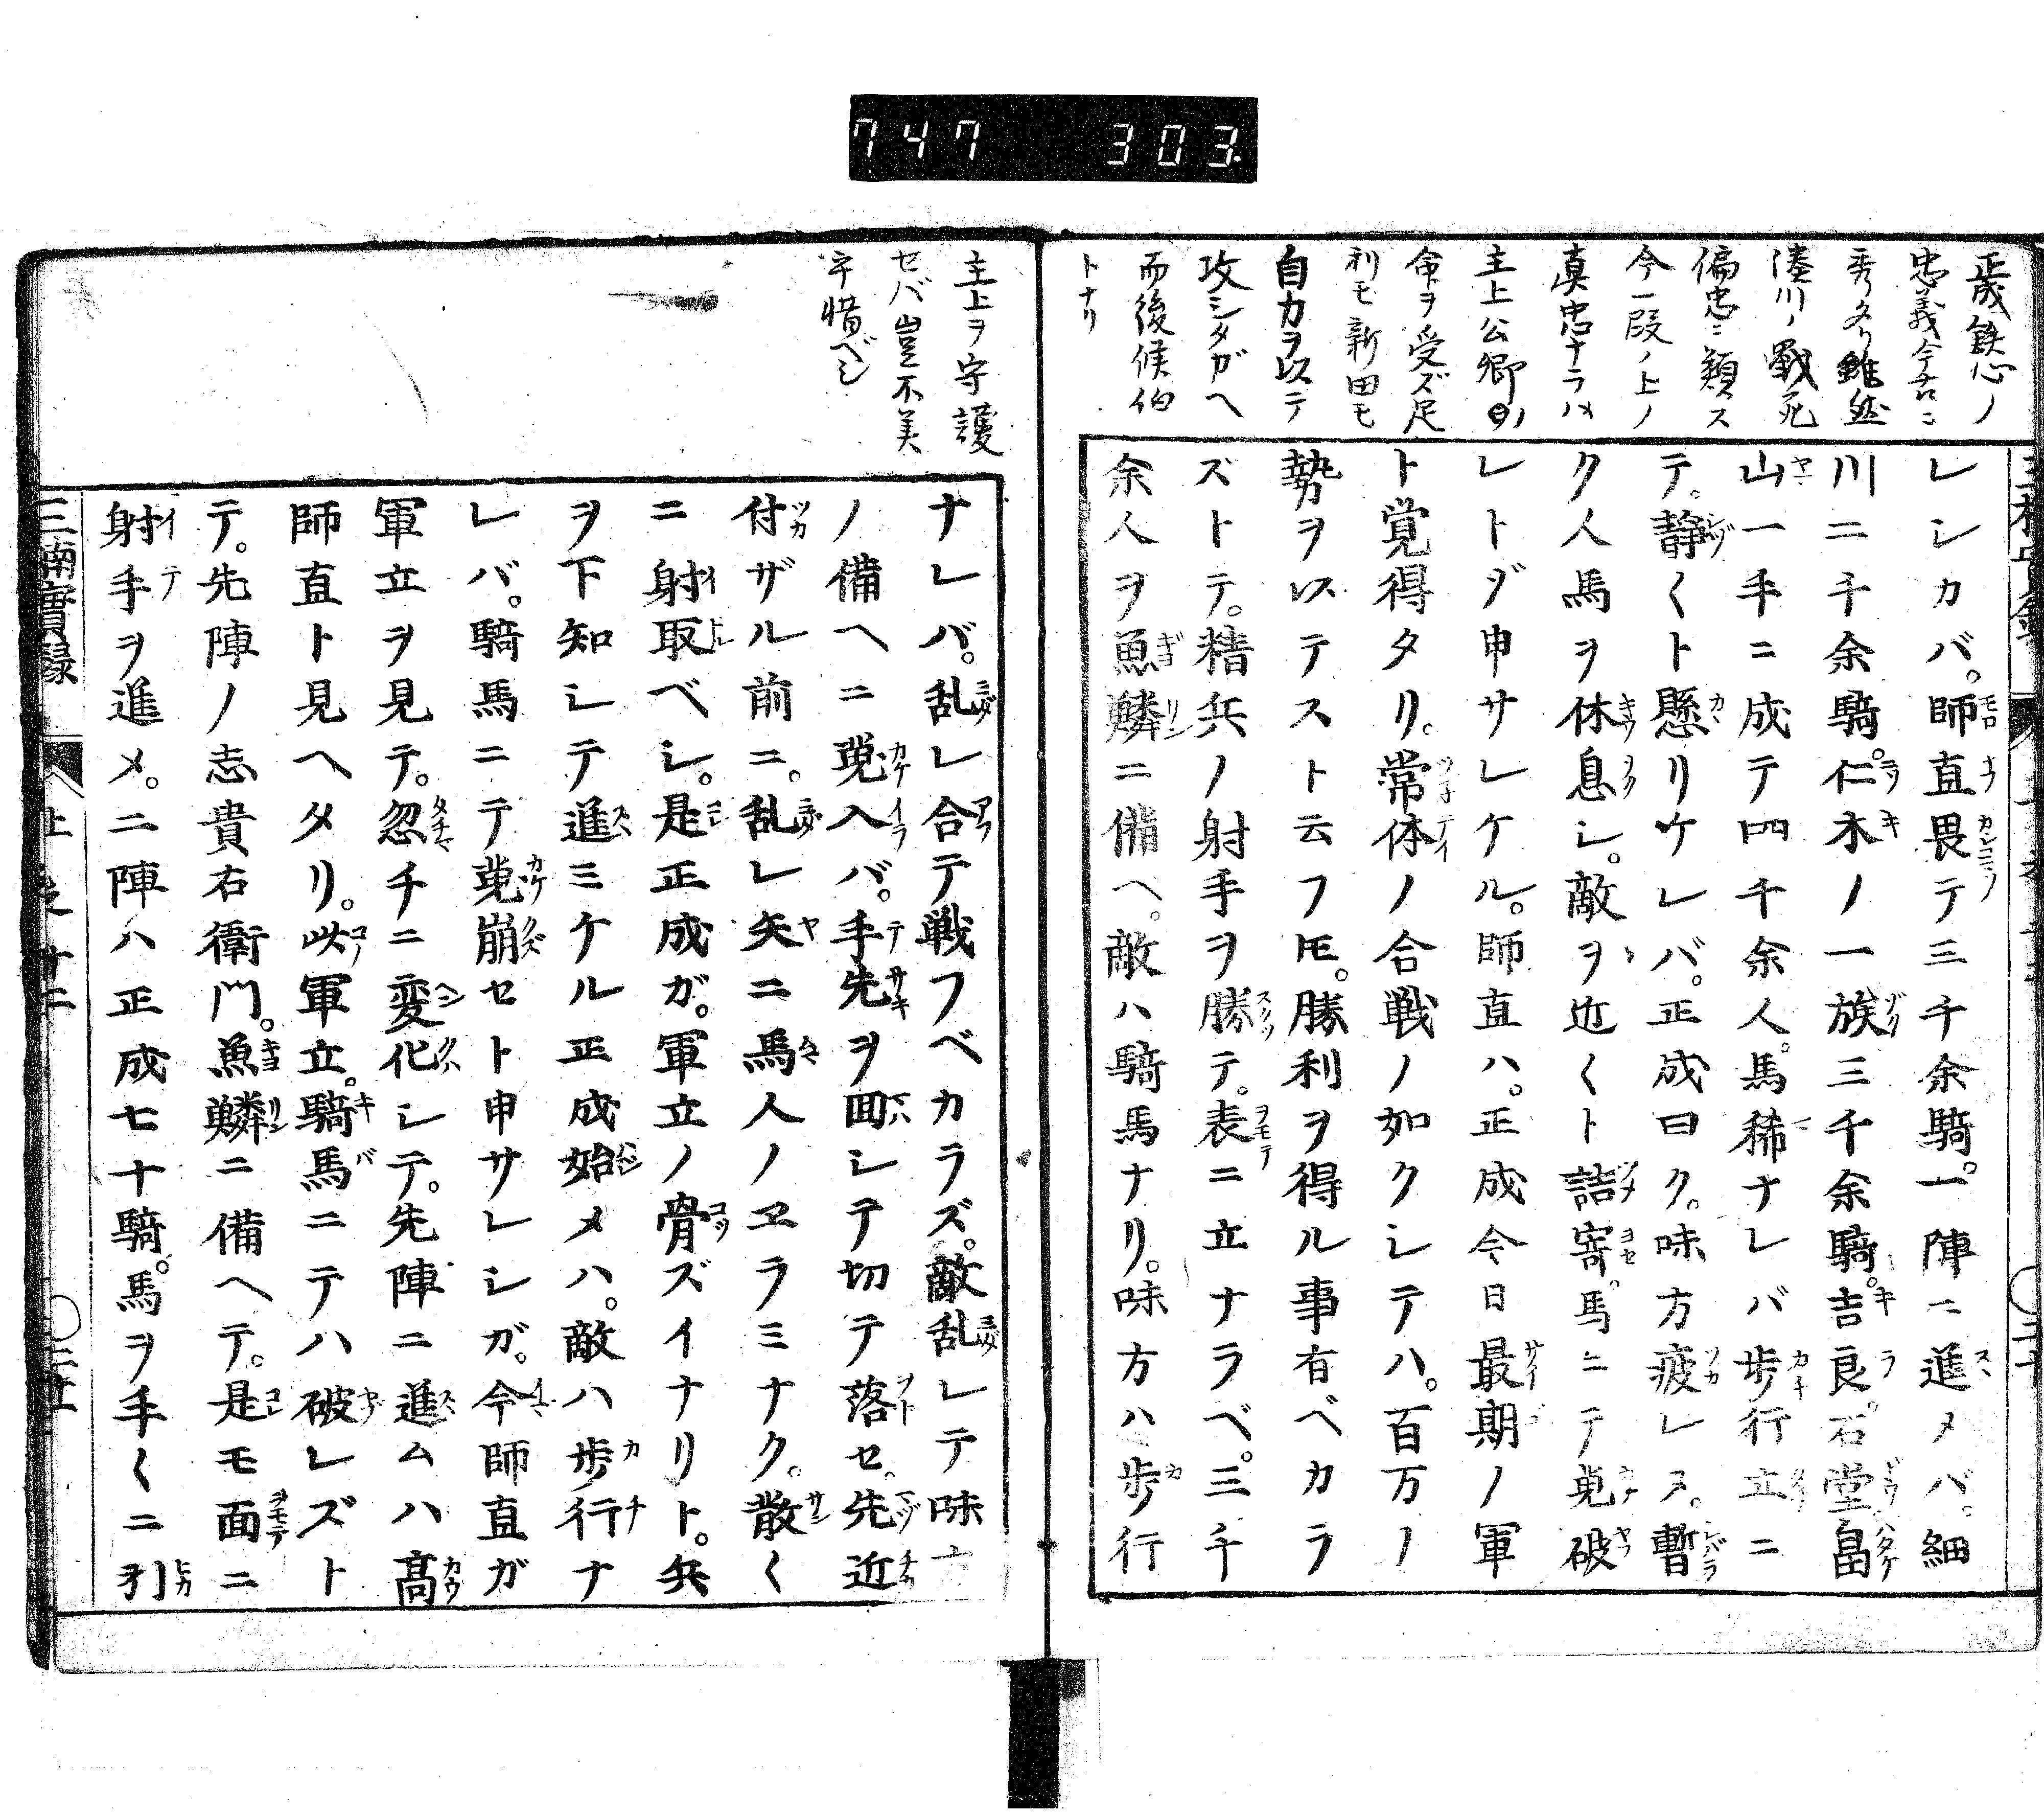 747 303.
正成鉄心ノ
忠義今古ニ
秀タリ雖然
湊川ノ戰死
偏忠ニ類ス
今一段ノ上ノ
真忠ナラハ
主上公卿ノ
命ヲ受ズ足
利モ新田モ
自カラ以テ
攻シタガヘ
而後候伯
トナリ
レシカバ。師直畏テ三千余騎。一陣ニ進メバ。細
川二千余騎。仁木ノ一族三千余騎。吉良。石堂畠
山一手ニ成テ四千余人。馬稀ナレバ歩行立ニ
テ。静〱ト懸リケレバ。正成曰ク。味方疲レヌ。暫
ク人馬ヲ休息シ。敵ヲ近〱ト詰寄。馬ニテ蒐破
レトゾ申サレケル。師直ハ。正成今日最期ノ軍
ト覚得タリ。常体ノ合戦ノ如クシテハ。百万ノ
勢ヲ以テストモ云フ𪜈。勝利ヲ得ル事有ベカラ
ズトテ。精兵ノ射手ヲ勝テ。表ニ立ナラベ。三千
余人ヲ魚鱗ニ備ヘ。敵ハ騎馬ナリ。味方ハ歩行
主上ヲ守護
セバ豈不美
乎惜ベシ
ナレバ。乱レ合テ戦フベカラズ。敵乱レテ味方
ノ備ヘニ蒐入バ。手先ヲ囬シテ切テ落セ。先近
付ザル前ニ。乱レ矢ニ馬人ノヱラミナク。散〱
ニ射取ベシ。是正成ガ。軍立ノ骨ズイナリト。兵
ヲ下知シテ進ミケル正成始メハ。敵ハ歩行ナ
レバ。騎馬ニテ蒐崩セト申サレシガ。今師直ガ
軍立ヲ見テ。忽チニ変化シテ。先陣ニ進ムハ高
師直ト見ヘタリ。此軍立。騎馬ニテハ破レズト
テ。先陣ノ志貴右衛門。魚鱗ニ備ヘテ。是モ面ニ
射手ヲ進メ。二陣ハ正成七十騎。馬ヲ手〱ニ引
三楠實録 上之廿二